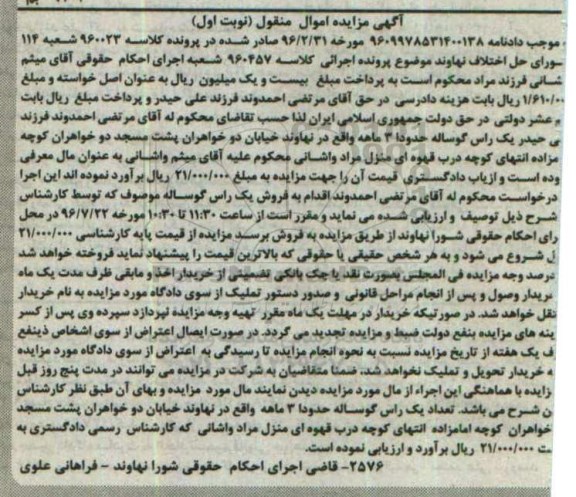 آگهی مزایده اموال منقول (نوبت اول)
موجب دادنامه ۹۶۰۹۹۷۸۵۳۱۴۰۰۱۳۸ مورخه ۹۶/۲/۳۱ صادر شده در پرونده کلاسه ۹۶۰۰۲۳ شعبه ۱۱۴
سورای حل اختلاف نهاوند موضوع پرونده اجرائی کلاسه ۹۶۰۴۵۷ شعبه اجرای احکام حقوقی آقای میثم
شانی فرزند مراد محکوم است به پرداخت مبلغ بیست و یک میلیون ریال به عنوان اصل خواسته و مبلغ
۱/۶۱۰/۰۰ ریال بابت هزینه دادرسی در حق آقای مرتضی احمدوند فرزند علی حیدر و پرداخت مبلغ ریال بابت
م عشر دولتی در حق دولت جمهوری اسلامی ایران لذا حسب تقاضای محکوم له آقای مرتضی احمدوند فرزند
ی حیدر یک راس گوساله حدودا ۳ ماهه واقع در نهاوند خیابان دو خواهران پشت مسجد دو خواهران کوچه
مزاده انتهای کوچه درب قهوه ای منزل مراد واشانی محکوم علیه آقای میثم واشانی به عنوان مال معرفی
وده است و ازیاب دادگستری قیمت آن را جهت مزایده به مبلغ ۲۱/۰۰۰/۰۰۰ ریال برآورد نموده اند این اجرا
درخواست محکوم له آقای مرتضی احمدوند اقدام به فروش یک راس گوساله موصوف که توسط کارشناس
شرح ذیل توصیف و ارزیابی شده می نماید و مقرر است از ساعت ۱۱:۳۰ تا ۱۰:۳۰ مورخه ۹۶/۷/۲۲ در محل
رای احکام حقوقی شورا نهاوند از طریق مزایده به فروش برسد مزایده از قیمت پایه کارشناسی ۲۱/۰۰۰/۰۰۰
ل شروع می شود و به هر شخص حقیقی یا حقوقی که بالاترین قیمت را پیشنهاد نماید فروخته خواهد شد
درصد وجه مزایده فی المجلس بصورت نقد یا چک بانکی تضمینی از خریدار اخذ و مابقی ظرف مدت یک ماه
خریدار وصول و پس از انجام مراحل قانونی و صدور دستور تملیک از سوی دادگاه مورد مزایده به نام خریدار
نقل خواهد شد. در صورتیکه خریدار در مهلت یک ماه مقرر تهیه وجه مزایده نپردازد سپرده وی پس از کسر
ینه های مزایده بنفع دولت ضبط و مزایده تجدید می گردد. در صورت ایصال اعتراض از سوی اشخاص ذینفع
ف یک هفته از تاریخ مزایده نسبت به نحوه انجام مزایده تا رسیدگی به اعتراض از سوی دادگاه مورد مزایده
ه خریدار تحویل و تملیک نخواهد شد. ضمنا متقاضیان به شرکت در مزایده می توانند در مدت پنج روز قبل
زایده با هماهنگی این اجراء از مال مورد مزایده دیدن نمایند مال مورد مزایده و بهای آن طبق نظر کارشناس
ن شرح می باشد. تعداد یک راس گوساله حدودا ۳ ماهه واقع در نهاوند خیابان دو خواهران پشت مسجد
خواهران کوچه امامزاده انتهای کوچه درب قهوه ای منزل مراد واشانی که کارشناس رسمی دادگستری به
مت ۲۱/۰۰۰/۰۰۰ ریال برآورد و ارزیابی نموده است.
۲۵۷۶- قاضی اجرای احکام حقوقی شورا نهاوند - فراهانی علوی